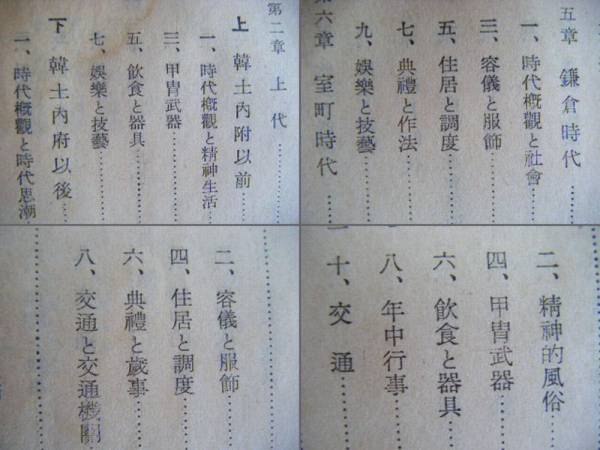 第二章 上代
上 韓土內附以前
一、時代概觀と精神生活
三、甲冑武器
五、飮食と器具
七、娛樂と技藝
下 韓土內府以後
一、時代概觀と時代思潮
五章 鎌倉時代
一、時代概觀と社會
三、容儀と服飾
五、住居と調度
七、典禮と作法
九、娛樂と技藝
第六章 室町時代
二、容儀と服飾
四、住居と調度
六、典禮と歲事
八、交通と交通機關
二、精神的風俗
四、甲冑武器
六、飮食と器具
八、年中行事
十、交通